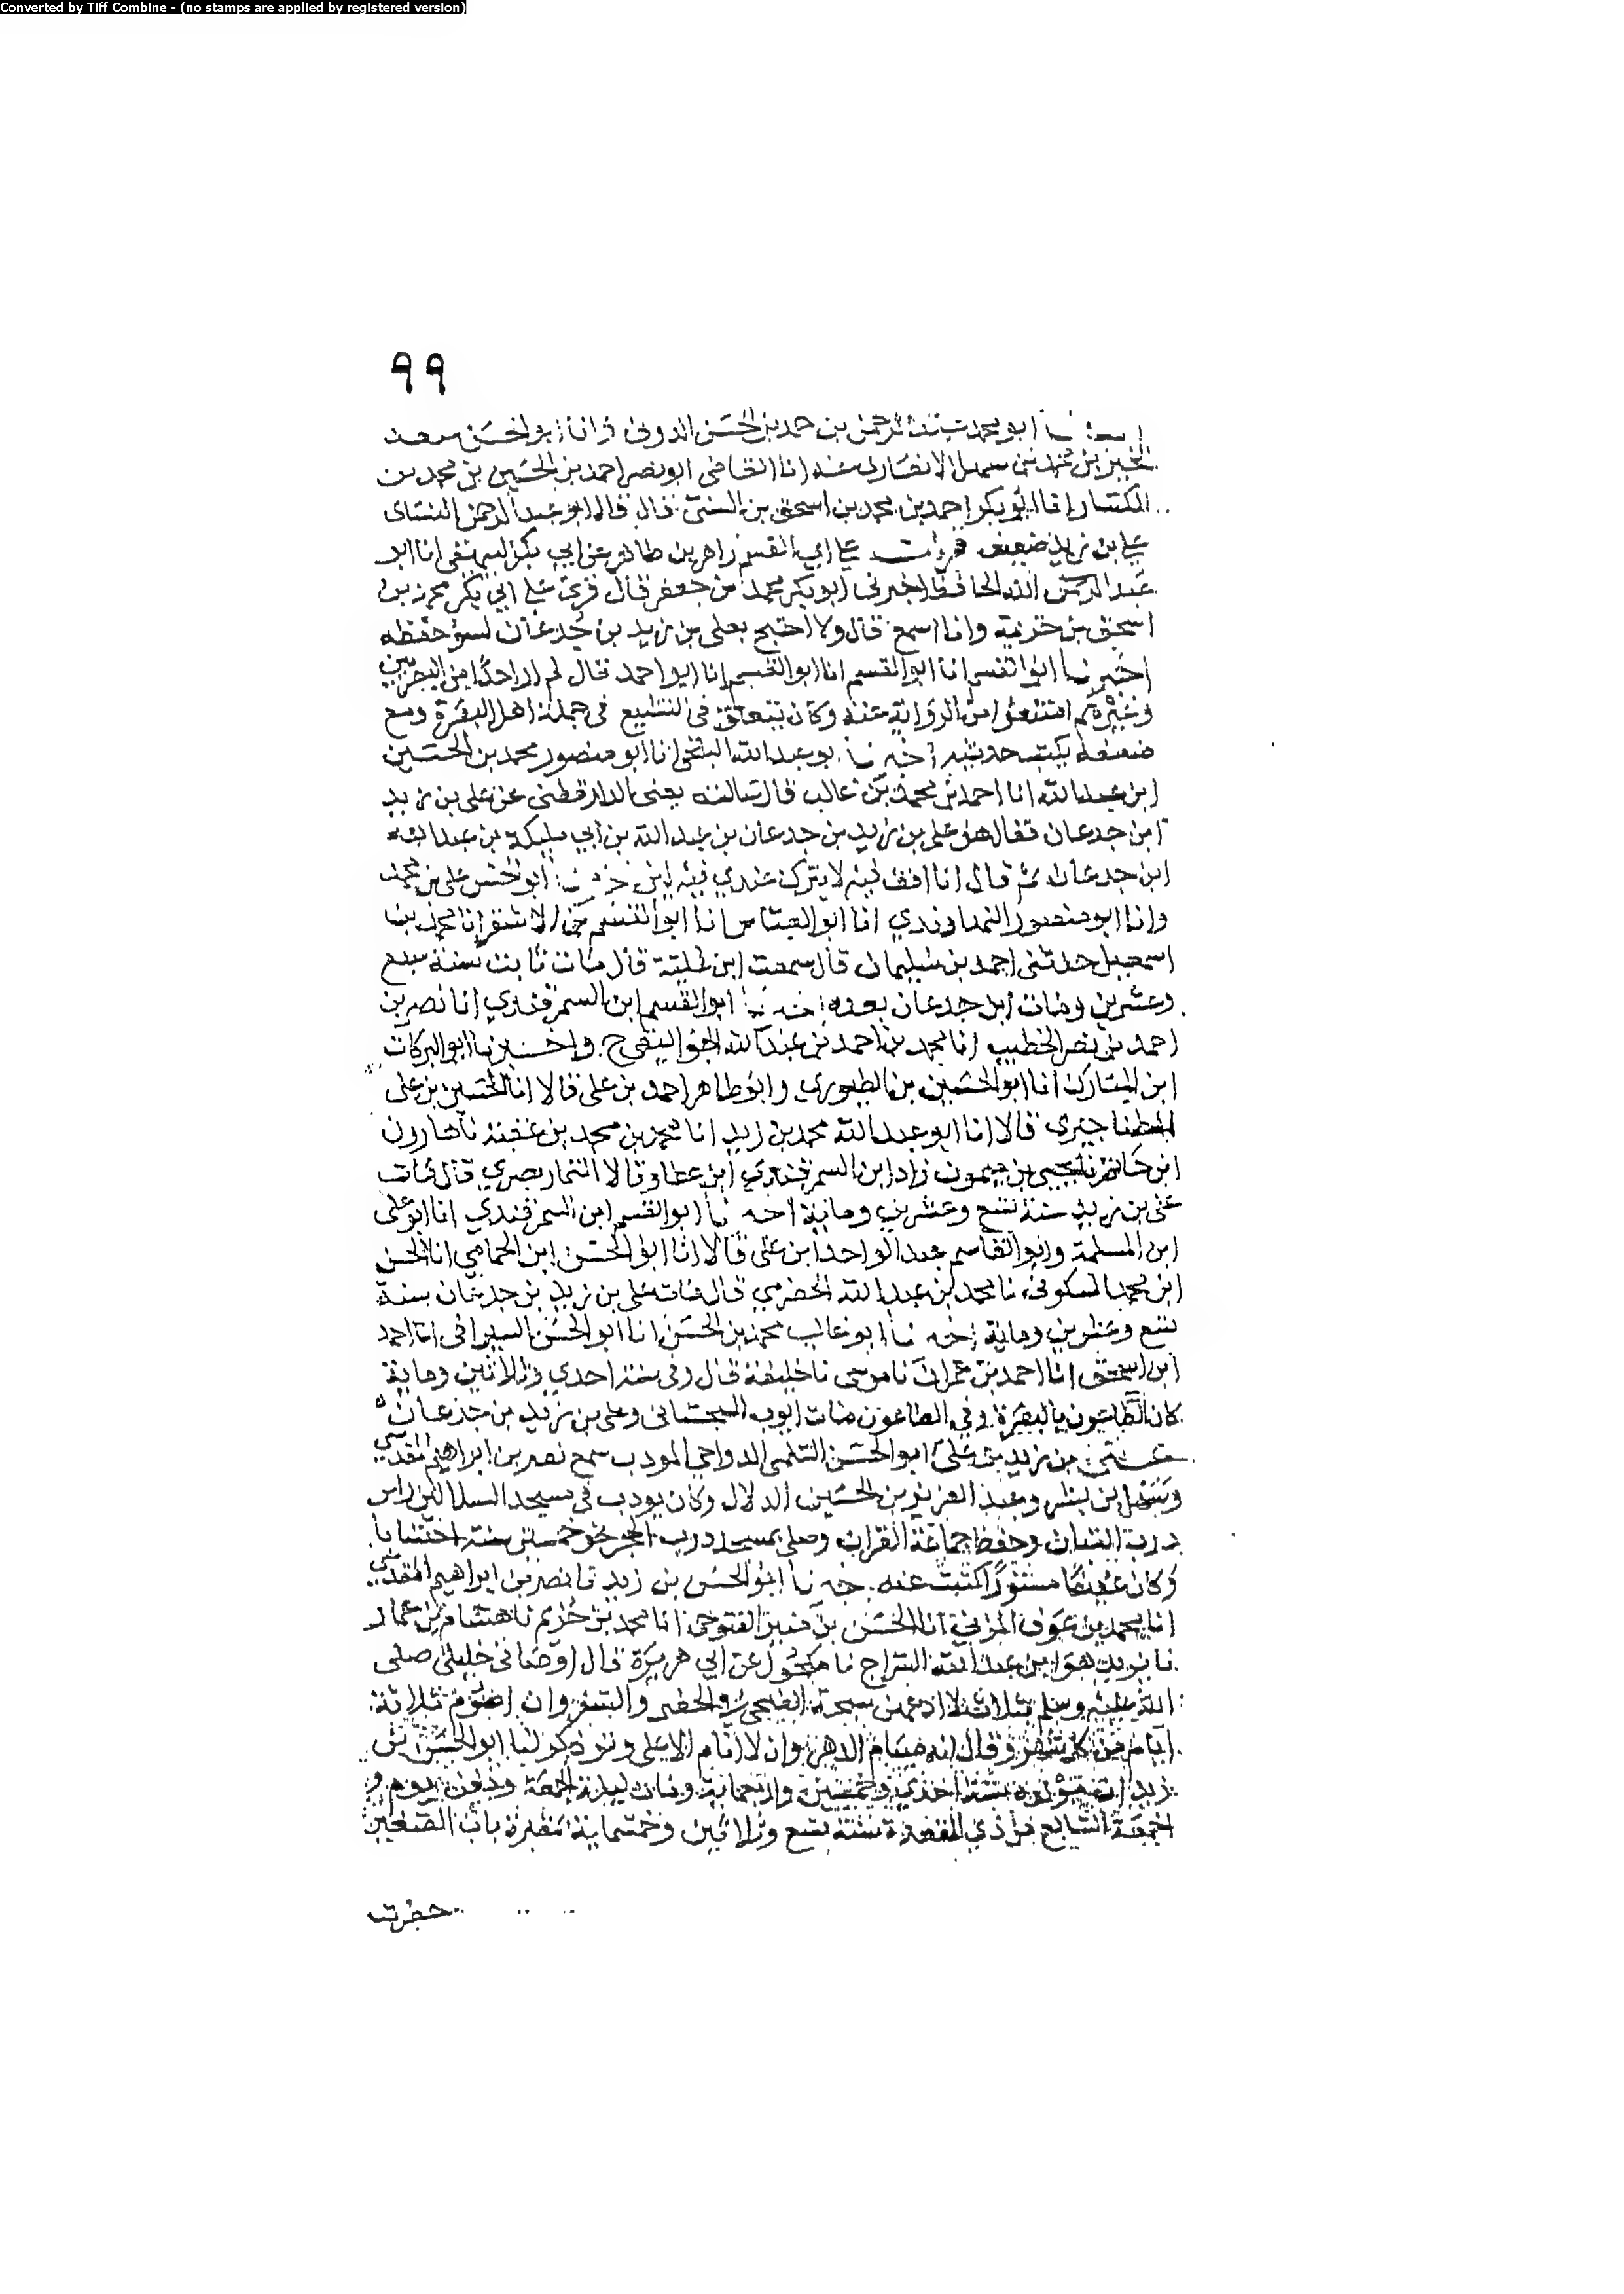 Converted by Tiff Combine - (no stamps are applied by registered version)
٩٩
ابو محمد عبد الرحمن بن حمد بن الحسن الدوني انا ابو الحسن
بن محمد بن سهل الانصاري منه انا القاضي ابو نصر احمد بن الحسين بن محمد بن
الكسار انا ابو بكر احمد بن محمد بن اسحق بن السني قال قال ابو عبد الرحمن النسائي
علي بن زيد ضعيف قرات على ابي القسم زاهر بن طاهر عن ابي بكر البيهقي انا ابو
عبد الله الحافظ اخبرني ابو بكر محمد بن جعفر قال قرئ على ابي بكر محمد بن
اسحق بن خزيمة وانا اسمع قال ولا احتج بعلي بن زيد بن جدعان لسو حفظه
اخبرنا ابو القسم انا ابو القسم انا ابو القسم انا ابو احمد قال لم ار احدا من البصريين
وغيرهم امتنعوا من الرواية عنه وكان يتعلق في التشيع في جملة اهل البصرة ومع
ضعفه يكتب حديثه اخبرنا ابو عبد الله البلخي انا ابو منصور محمد بن الحسين
ابن عبد الله انا احمد بن محمد بن غالب قال سالته يعني الدارقطني عن علي بن زيد
ابن جدعان فقال هو علي بن زيد بن جدعان بن عبد الله بن ابي مليكة بن عبد الله
ابن جدعان ثم قال انا اقف فيه لا يترك عندي فيه لين اخبرنا ابو الحسن علي بن محمد
وانا ابو منصور النهاوندي انا ابو العباس انا ابو القسم بن الاشقر انا محمد بن
اسمعيل حدثني احمد بن سليمان قال سمعت ابن علية قال مات ثابت سنة سبع
وعشرين ومات ابن جدعان بعده اخبرنا ابو القسم ابن السمرقندي انا نصر بن
احمد بن نصر الخطيب انا محمد بن احمد بن عبد الله الجواليقي ح واخبرنا ابو البركات
ابن المبارك انا ابو الحسين بن الطيوري وابو طاهر احمد بن علي قالا انا الحسين بن علي
الطناجيري قالا انا ابو عبد الله محمد بن زيد انا محمد بن محمد بن عقبة نا هارون
ابن حاتم نا يحيى بن ميمون زاد ابن السمرقندي ابن عطا وقالا التمار بصري قال مات
علي بن زيد سنة تسع وعشرين وماية اخبرنا ابو القسم ابن السمرقندي انا ابو علي
ابن المسلمة وابو القاسم عبد الواحد ابن علي قالا انا ابو الحسن ابن الحمامي انا الحسن
ابن محمد السكوني نا محمد بن عبد الله الحضرمي قال مات علي بن زيد بن جدعان سنة
تسع وعشرين وماية اخبرنا ابو غالب محمد بن الحسن انا ابو الحسن السيرافي انا احمد
ابن اسحق انا احمد بن عمران نا موسى نا خليفة قال وفي سنة احدي وثلاثين وماية
كان الطاعون بالبصرة وفي الطاعون مات ايوب السجستاني وعلي بن زيد بن جدعان
علي بن زيد بن علي ابو الحسن السلمي الدواحي المودب سمع نصر بن ابراهيم المقدسي
وسهل بن بشر وعبد العزيز بن الحسين الدلال وكان يودب في مسجد السلالين راس
درب التبان وحفظ جماعة القران وصلى بمسجد درب الحجر نحو خمسين سنة احتسابا
وكان عفيفا مستورا كتبت عنه اخبرنا ابو الحسن بن زيد نا نصر بن ابراهيم المقدسي
انا محمد بن عوف المزني انا الحسن بن منير التنوخي انا محمد بن خريم نا هشام بن عمار
نا يزيد هو ابن عبد الله السراج نا مكحول عن ابي هريرة قال اوصاني خليلي صلى
الله عليه وسلم بثلاث لا ادعهن سبحة الضحى في الحضر والسفر وان اصوم ثلاثة
ايام من كل شهر وقال انه صيام الدهر وان لا انام الا على وتر ذكر لنا ابو الحسن بن
زيد ان مولده سنة احدي وخمسين واربعماية ومات ليلة الجمعة ودفن يوم
الجمعة السابع من ذي القعدة سنة تسع وثلاثين وخمسماية مقبرة باب الصغير
حضرت